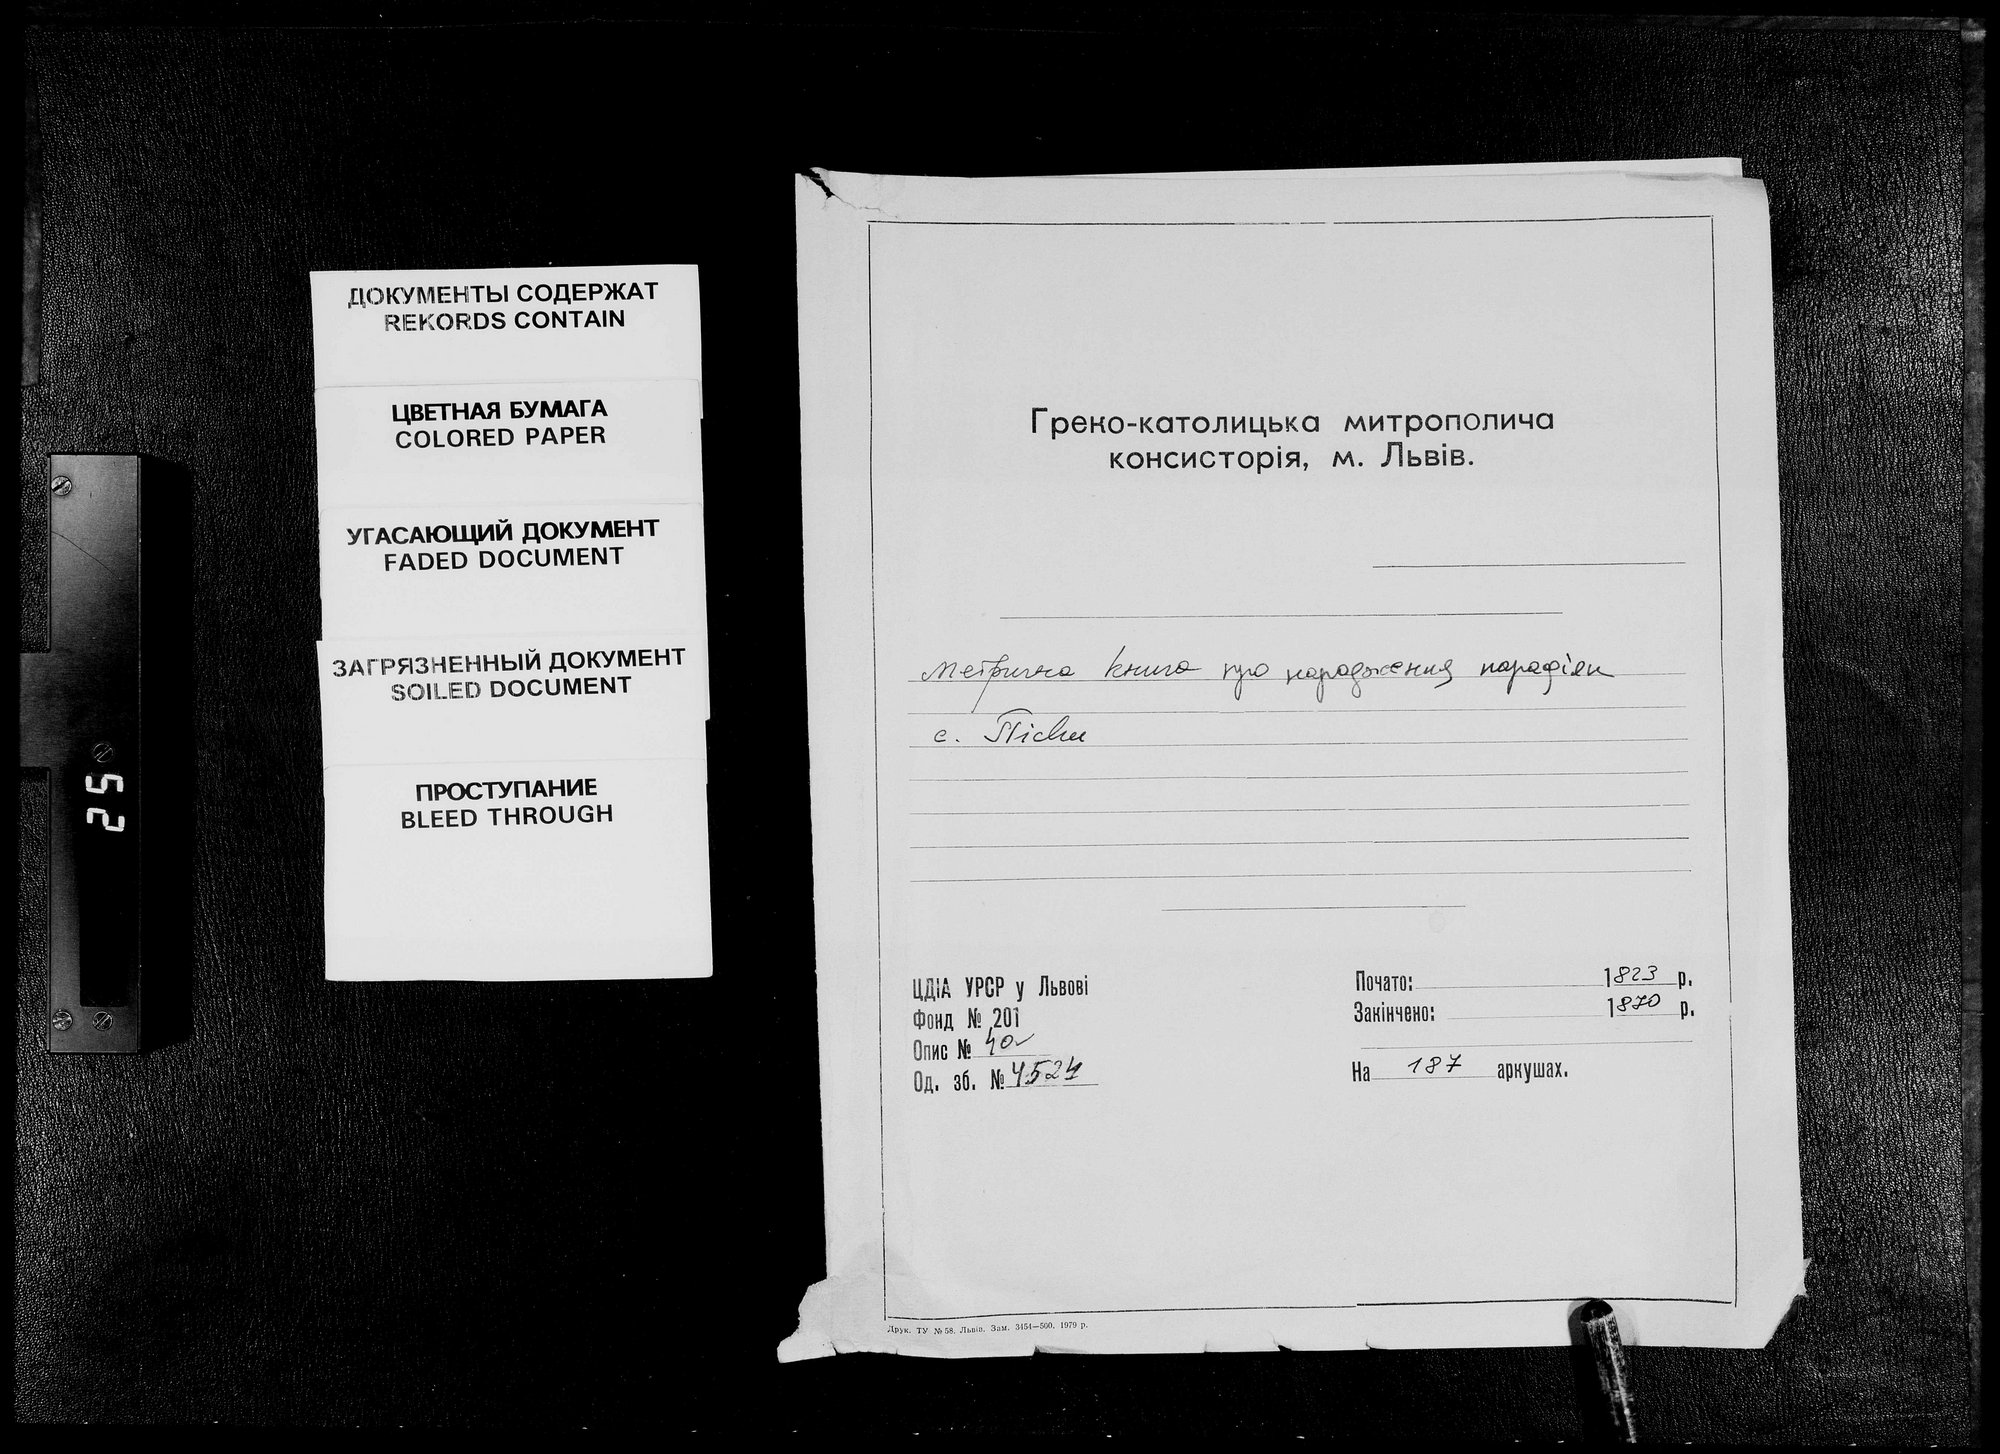 ДОКУМЕНТЫ СОДЕРЖАТ
REKORDS CONTAIN
ЦВЕТНАЯ БУМАГА
COLORED PAPER
УГАСАЮЩИЙ ДОКУМЕНТ
FADED DOCUMENT
ЗАГРЯЗНЕННЫЙ ДОКУМЕНТ
SOILED DOCUMENT
ПРОСТУПАНИЕ
BLEED THROUGH
25
Греко-католицька митрополича
консисторія, м. Львів.
Метрична книга про народження парафіян
с. Піски
ЦДІА УРСР у Львові
Фонд № 201
Опис № 4а
Од. зб. № 4524
Почато: 1823 р.
Закінчено: 1870 р.
На 187 аркушах.
Друк. ТУ № 58. Львів. Зам. 3454—500. 1979 р.